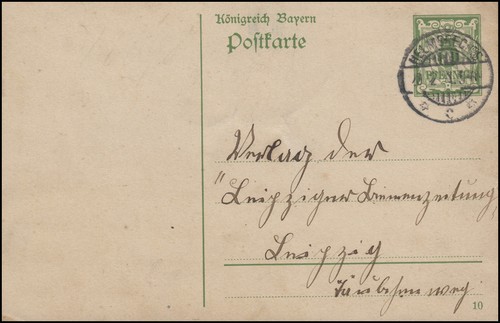 Königreich Bayern
Postkarte
Verlag der
"Leipziger Bienenzeitung
Leipzig
Täubchenweg
10